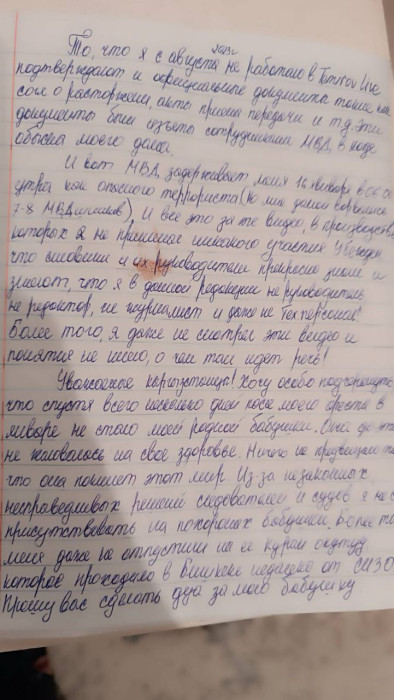 То, что я с августа 2023г не работаю в Temirov Live
подтверждают и официальные документы такие как
согл о расторжении, акты приема передачи и т.д. Эти
документы были изъяты сотрудниками МВД, в ходе
обыска моего дома.
И вот МВД задерживает меня 16 января в 06:00
утра как опасного террориста (ко мне домой ворвались
7-8 МВДшников). И все это за те видео, в производстве
которых я не принимал никакого участия. Убежден,
что силовики и их руководители прекрасно знали и
знают, что я в данной редакции не руководитель,
не редактор, не журналист и даже не тех персонал!
Более того, я даже не смотрел эти видео и
понятия не имею, о чем там идет речь!
Уважаемые кыргызстанцы! Хочу особо подчеркнуть
что спустя всего несколько дней после моего ареста в
январе не стало моей родной бабушки. Она до этого
не жаловалась на свое здоровье. Ничего не предвещало того
что она покинет этот мир. Из-за незаконных
несправедливых решений следователей и судей я не смог
присутствовать на похоронах бабушки. Более того
меня даже не отпустили на ее куран окутуу
которое проходило в Бишкеке недалеко от СИЗО
Прошу вас сделать дуа за мою бабушку